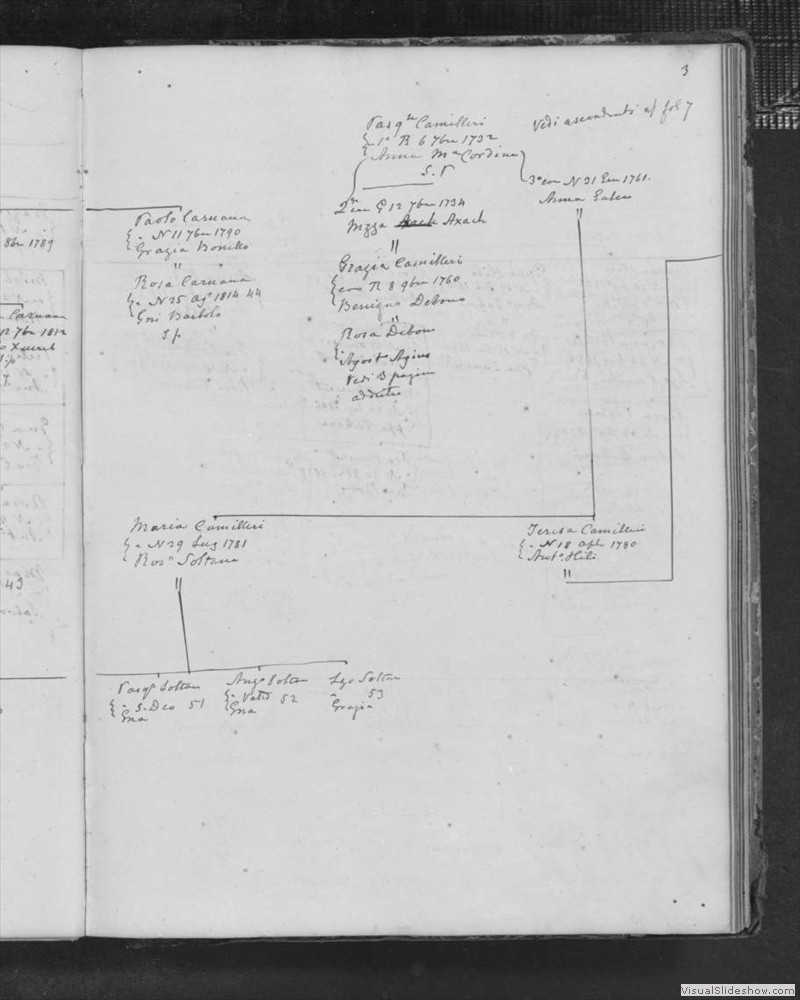 3
Vedi ascendenti a fol 7
Pasq.le Camilleri
1º R 6 7bre 1732
Anna Mª Cordina
S.P.
2ª con G 12 7bre 1734
Mzza Axach
3ª con N 31 En 1761.
Anna
8bre 1789
Paolo Caruana
N 11 7bre 1790
Grazia Bonello
Rosa Caruana
N 25 Agº 1814 44
Gni Bartolo
S p.
Caruana
R 7br 1812
Xuereb
Grazia Camilleri
con R 8 9bre 1760
Benigno Debono
Rosa Debono
Agostº Agius
Vedi B pagina
Maria Camilleri
N 29 Lug 1781
Rosº Soltana
Teresa Camilleri
N 18 Aple 1780
Antº Hili
43
Pasq.le Soltana
S. Dco 51
Gna
Angº Soltana
52
Gna
Soltana
53
Grazia
VisualSlideshow.com